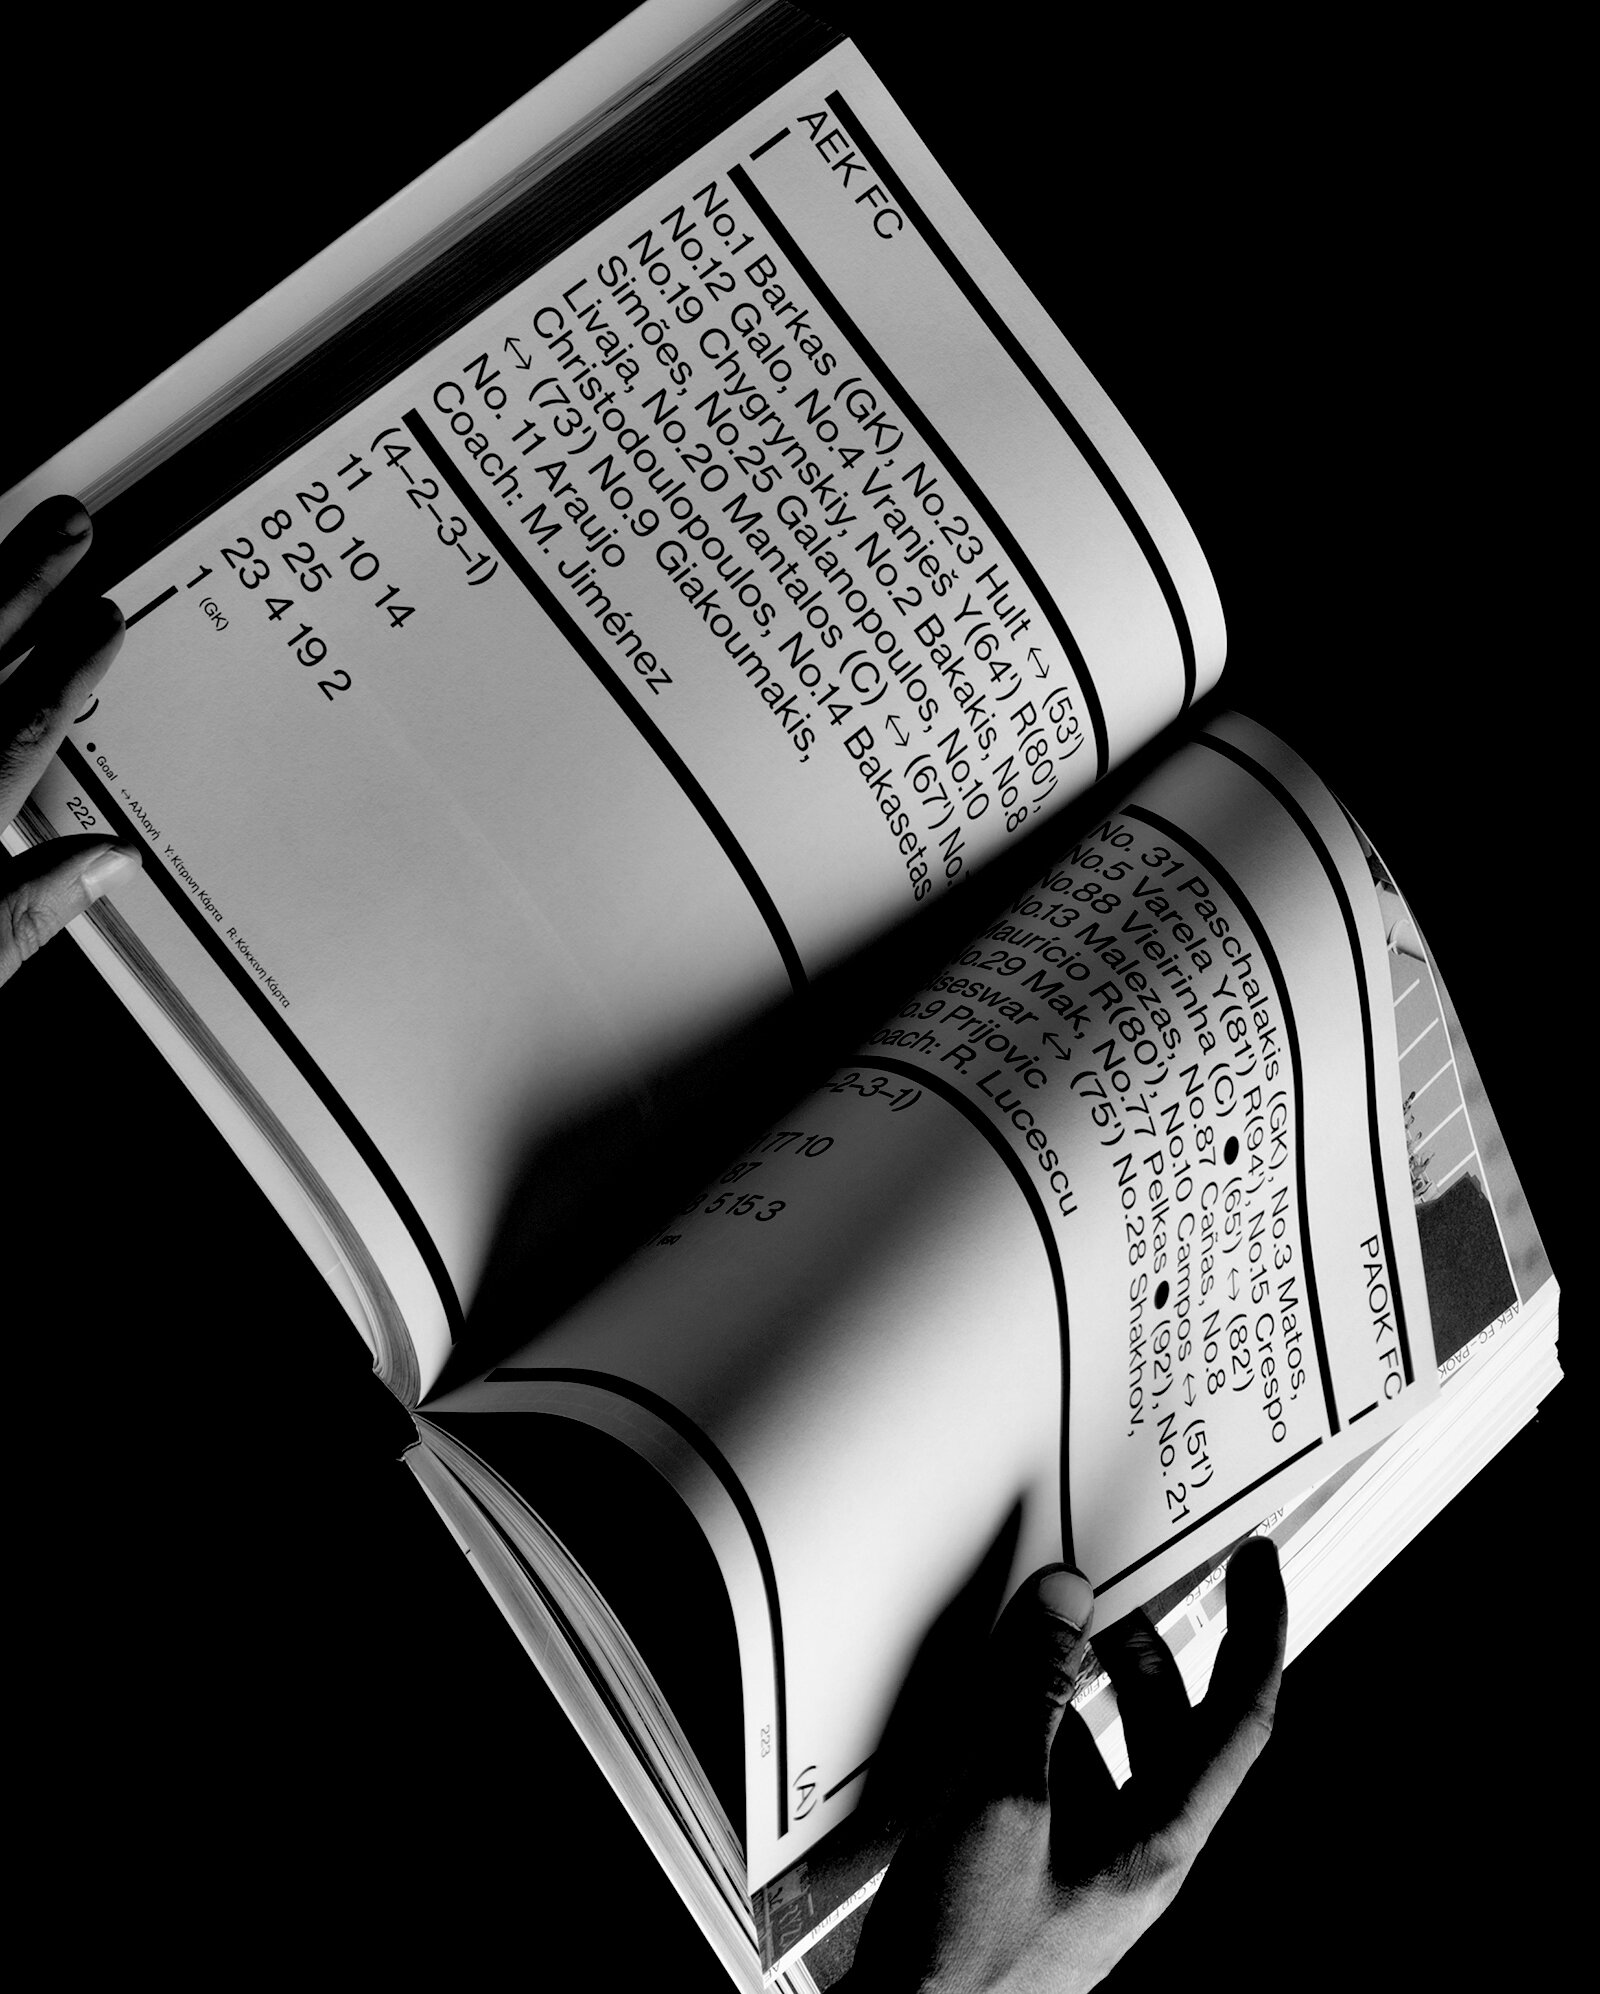 AEK FC
No.1 Barkas (GK), No.23 Hult ↔ (53')
No.12 Galo, No.4 Vranješ Y(64') R(80'),
No.19 Chygrynskiy, No.2 Bakakis, No.8
Simões, No.25 Galanopoulos, No.10
Livaja, No.20 Mantalos (C) ↔ (67') No.
Christodoulopoulos, No.14 Bakasetas
↔ (73') No.9 Giakoumakis,
No. 11 Araujo
Coach: M. Jiménez
(4–2–3–1)
11
20 10 14
8 25
23 4 19 2
1 (GK)
● Goal ↔ Αλλαγή Y: Κίτρινη Κάρτα R: Κόκκινη Κάρτα
222
PAOK FC
No. 31 Paschalakis (GK), No.3 Matos,
No.5 Varela Y(81') R(94'), No.15 Crespo
No.88 Vieirinha (C) ● (65') ↔ (82')
No.13 Malezas, No.87 Cañas, No.8
Maurício R(80'), No.10 Campos ↔ (51')
No.29 Mak, No.77 Pelkas ● (92'), No. 21
iseswar ↔ (75') No.28 Shakhov,
No.9 Prijovic
Coach: R. Lucescu
–2–3–1)
77 10
87
5 15 3
(A)
223
AEK FC–PAOK